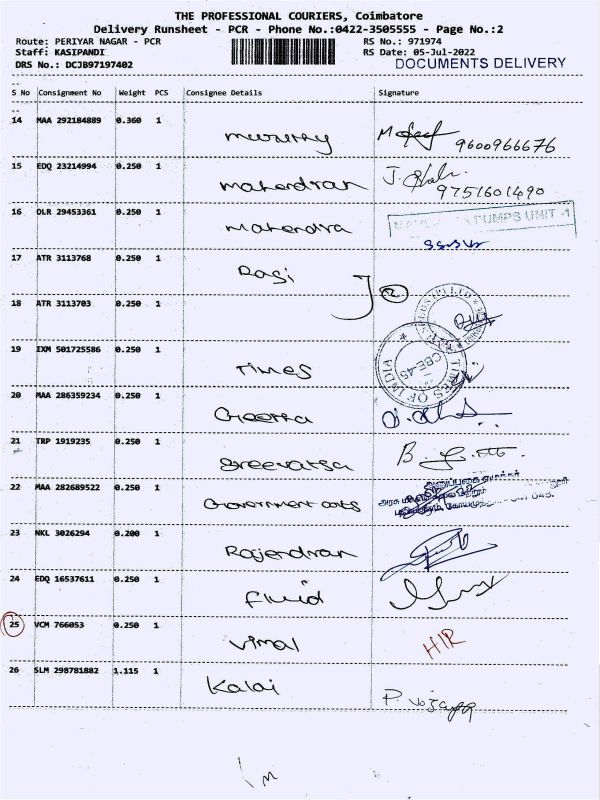 THE PROFESSIONAL COURIERS, Coimbatore
Delivery Runsheet - PCR - Phone No.:0422-3505555 - Page No.:2
Route: PERIYAR NAGAR - PCR RS No.: 971974
Staff: KASIPANDI RS Date: 05-Jul-2022
DRS No.: DCJB97197402 DOCUMENTS DELIVERY
S No Consignment No Weight PCS Consignee Details Signature
14 MAA 292184889 0.360 1
9600966676
15 EDQ 23214994 0.250 1
Mahendran 9751601490
16 OLR 29453361 0.250 1
Mahendra PUMPS UNIT -1
17 ATR 3113768 0.250 1
Rasi
18 ATR 3113703 0.250 1
19 IXM 501725586 0.250 1
Times TIMES OF INDIA CBE-45
20 MAA 286359234 0.250 1
Geetha
21 TRP 1919235 0.250 1
Sreevatsa
22 MAA 282689522 0.250 1
Government arts
23 NKL 3026294 0.200 1
Rajendran
24 EDQ 16537611 0.250 1
Fluid
25 VCM 766053 0.250 1
Vimal H/R
26 SLM 298781882 1.115 1
Kalai